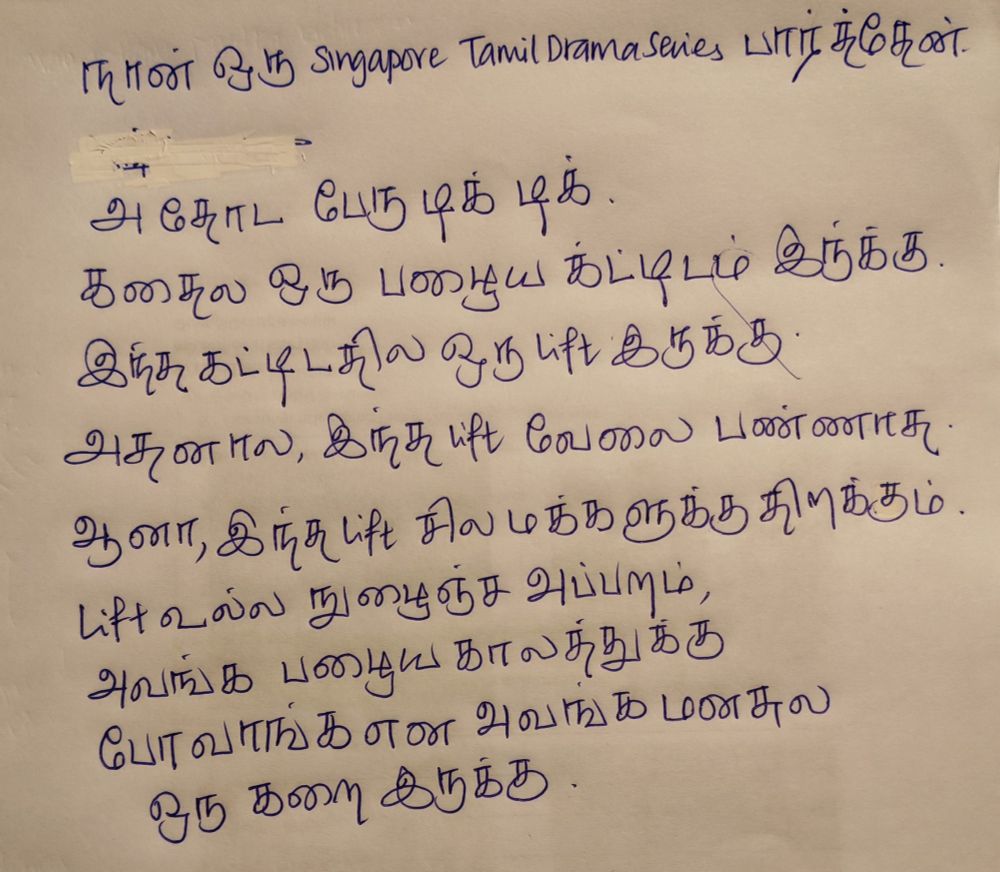 நான் ஒரு Singapore Tamil Drama Series பார்த்தேன்.
அதோட பேரு டிக் டிக்.
கதைல ஒரு பழைய கட்டிடம் இருக்கு.
இந்த கட்டிடதில ஒரு lift இருக்கு.
அதனால, இந்த lift வேலை பண்ணாது.
ஆனா, இந்த lift சில மக்களுக்கு திறக்கும்.
Lift உல்ல நுழைஞ்ச அப்பறம்,
அவங்க பழைய காலத்துக்கு
போவாங்க என அவங்க மனசுல
ஒரு கறை இருக்கு.